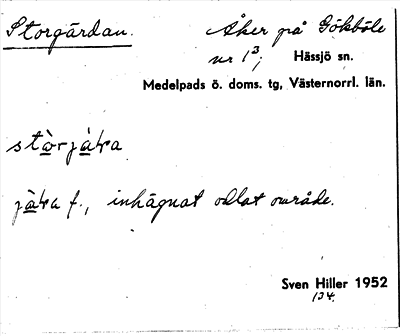 Storgårdan. Åker på Gökböle
nr 1³; Hässjö sn.
Medelpads ö. doms. tg, Västernorrl. län.
f., inhägnat odlat område.
Sven Hiller 1952
134.